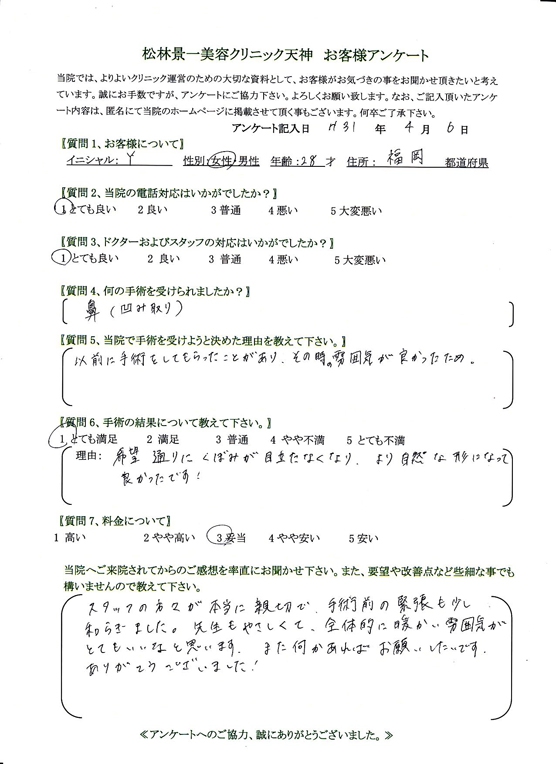 松林景一美容クリニック天神　お客様アンケート
当院では、よりよいクリニック運営のための大切な資料として、お客様がお気づきの事をお聞かせ頂きたいと考え
ています。誠にお手数ですが、アンケートにご協力下さい。よろしくお願い致します。なお、ご記入頂いたアンケ
ート内容は、匿名にて当院のホームページに掲載させて頂く事もございます。何卒ご了承下さい。
アンケート記入日　H31　年　4　月　6　日
〖質問1、お客様について〗
イニシャル：Y　性別：女性・男性　年齢：28　才　住所：福岡　都道府県
〖質問2、当院の電話対応はいかがでしたか？〗
1 とても良い　2 良い　3 普通　4 悪い　5 大変悪い
〖質問3、ドクターおよびスタッフの対応はいかがでしたか？〗
1 とても良い　2 良い　3 普通　4 悪い　5 大変悪い
〖質問4、何の手術を受けられましたか？〗
鼻（凹み取り）
〖質問5、当院で手術を受けようと決めた理由を教えて下さい。〗
以前に手術をしてもらったことがあり、その時の雰囲気が良かったため。
〖質問6、手術の結果について教えて下さい。〗
1 とても満足　2 満足　3 普通　4 やや不満　5 とても不満
理由：希望通りにくぼみが目立たなくなり、より自然な形になって
良かったです！
〖質問7、料金について〗
1 高い　2 やや高い　3 妥当　4 やや安い　5 安い
当院へご来院されてからのご感想を率直にお聞かせ下さい。また、要望や改善点など些細な事でも
構いませんので教えて下さい。
スタッフの方々が本当に親切で、手術前の緊張も少し
和らぎました。先生もやさしくて、全体的に暖かい雰囲気が
とてもいいなと思います。また何かあればお願いしたいです。
ありがとうございました！
≪アンケートへのご協力、誠にありがとうございました。≫